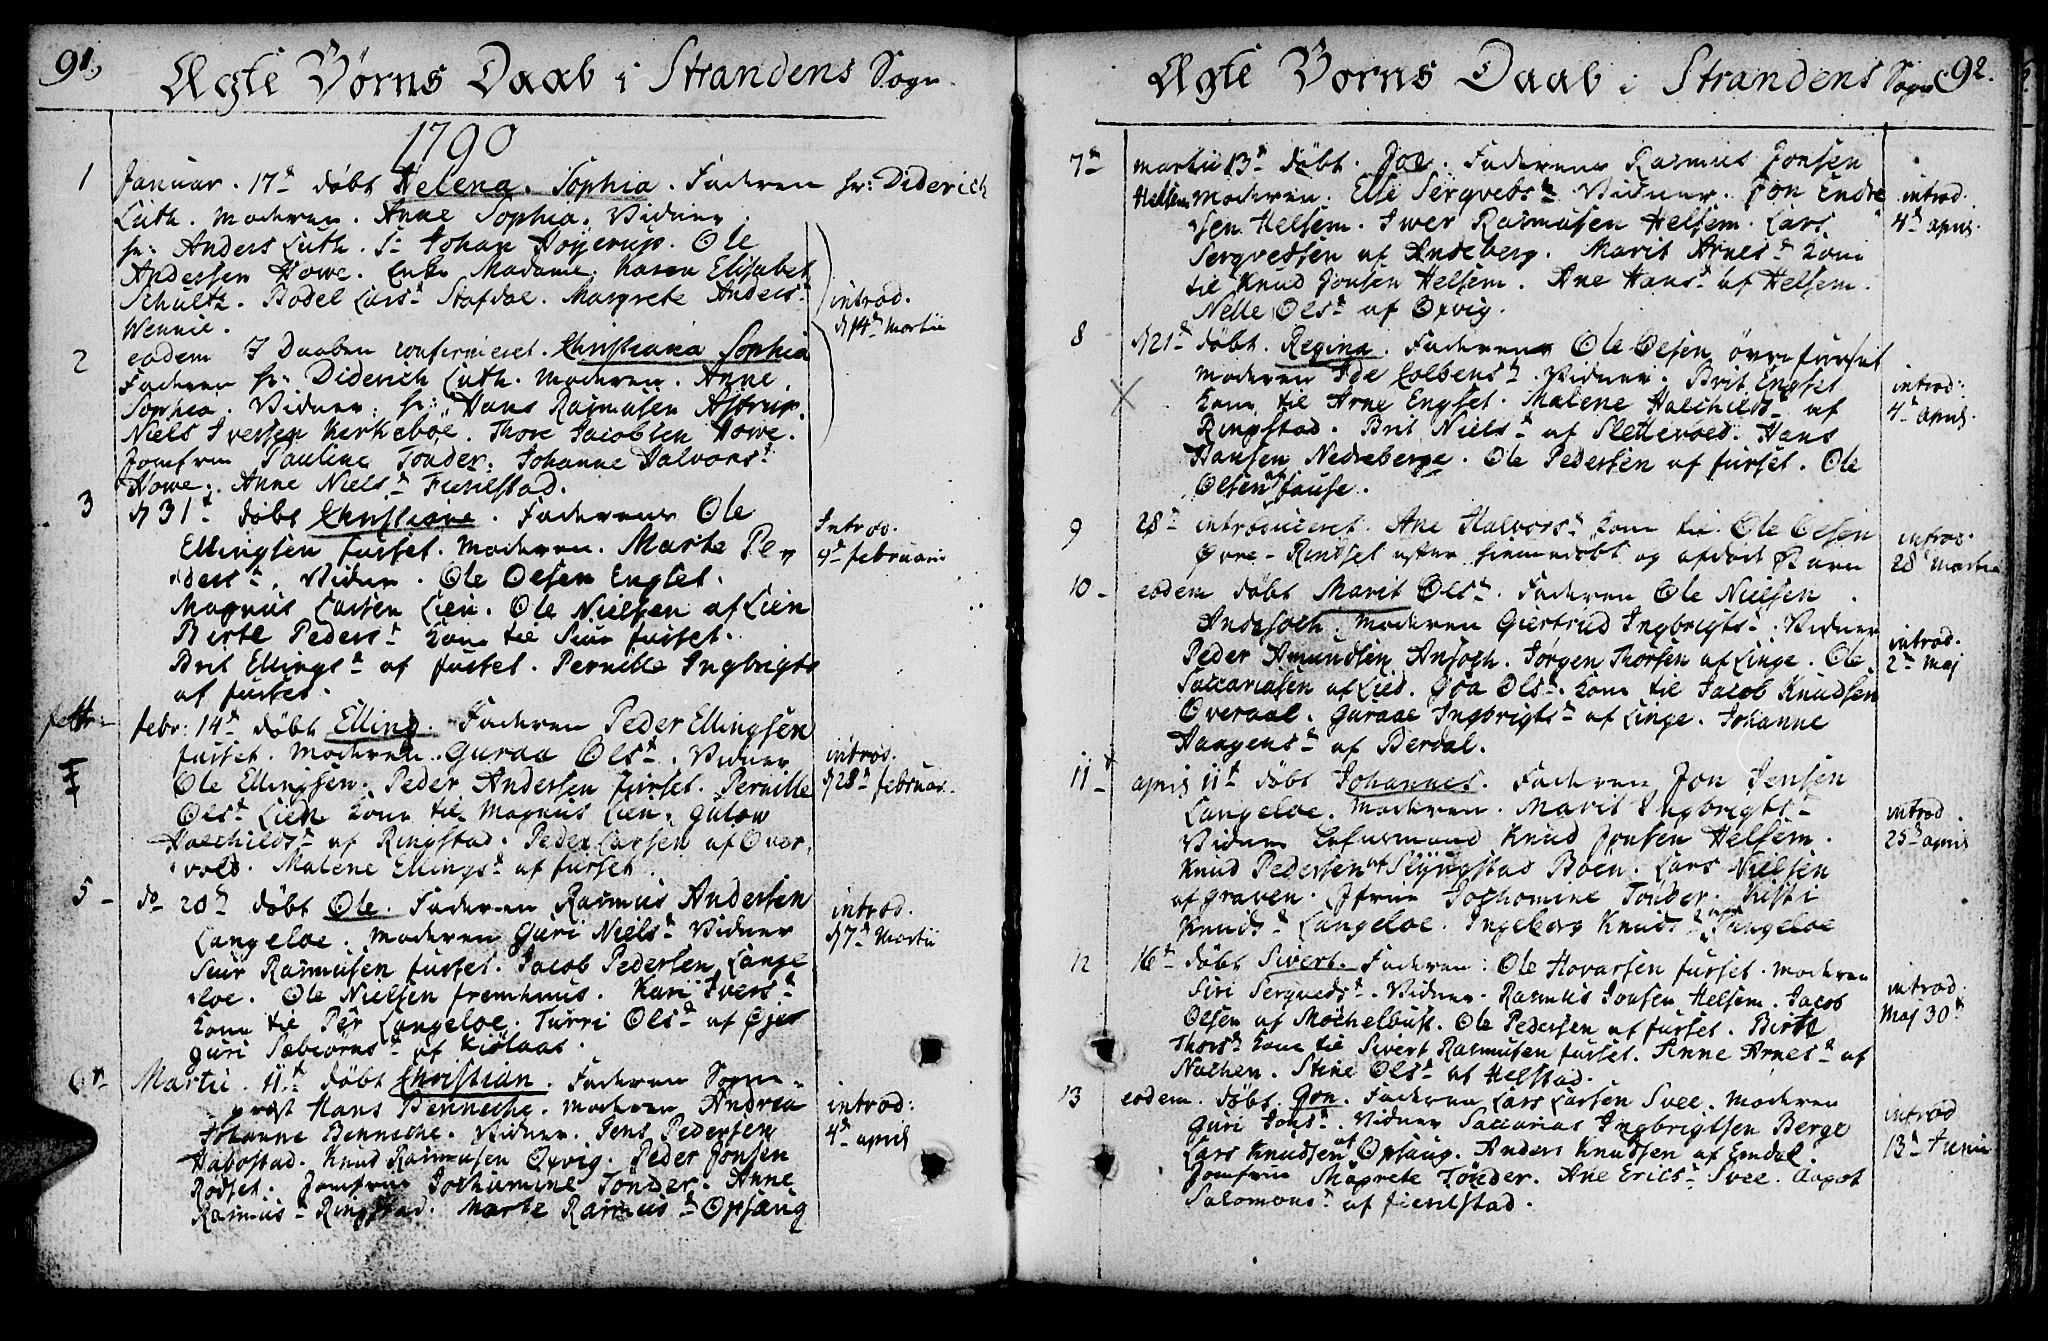 91.
Ægte Börns Daab i Strandens Sogn.
1790
1 Januar. 17de döbt Helena. Sophia. Faderen hr: Diderich
Luth. Moderen. Anne Sophia. Vidner.
hr: Anders Luth. Sr Johan Höyerup. Ole
Andersen Howe. Enke Madame. Karen Elisabet
Schultz. Bodel Larsdr Stafdal. Margrete Andersdr
Wennie.
introd.
d 14de Martii
2 eodem J Daaben confirmeret. Christiana Sophia
Faderen hr: Diderich Luth. Moderen. Anne
Sophia. Vidner: hr: Hans Rasmusen Astrup.
Niels Iversen Kerkeboe. Thore Jacobsen Howe.
Jomfru Pauline Tonder. Johanne Halvorsdr
Howe. Anne Nielsdr Fiærilstad.
3 d 31te döbt Christiane. Faderen Ole
Ellingsen furset. Moderen. Marte Pe-
dersdr. Vidner. Ole Olsen Engset.
Magnus Larsen Lien. Ole Nielsen af Lien
Birte Pedersdr Kone til Siur furset.
Brit Ellingsdr af furset. Pernille Ingbrigts
af furset.
Introd.
4de februarii
febr: 14de döbt Elling. Faderen Peder Ellingsen
furset. Moderen. Guraa Olsdr. Vidner
Ole Ellingsen. Peder Andersen furset. Pernille
Olsdr Lien Kone til Magnus Lien. Gulow
Halchildsdr af Ringstad. Peder Larsen af Over
vold. Malene Ellingsdr af furset.
introd.
d 28de februar.
5 - do 20de döbt Ole. Faderen Rasmus Andersen
Langeloe. Moderen Guri Nielsdr Vidner
Siur Rasmusen furset. Jacob Pedersen Lange
loe. Ole Nielsen fremhuus. Kari Iversdr
Kone til Per Langeloe. Turri Olsdr af Öjes
Guri Sæbiörnsdr af Kiölaas.
introd.
d 7de Martii
6 Martii. 11te döbt Christian. Faderen Sogne-
præst Hans Benneche. Moderen Andrea
Johanne Benneche. Vidner. Jens Pedersen
Habostad. Knud Rasmusen Oxvig. Peder Jonsen
Rödset. Jomfru Jochumine Tonder. Anne
Rasmusdr Ringstad. Marte Rasmusdr Opsang
introd:
4de april
Ægte Börns Daab i Strandens Sogn 92.
7de Martii 13de döbt. Joe. Faderen Rasmus Jonsen
Helsem Moderen. Else Sergvedsdr Vidner. Jon Endre
sen Helsem. Iwer Rasmusen Helsem. Lars
Sergvedsen af Andeberg. Marit Arnesdr Kone
til Knud Jonsen Helsem. Ane Hansdr af Helsem.
Nelle Olsdr af Oxvig.
introd.
4de april.
8 d 21de döbt. Regina. Faderen Ole Olsen övre furset
Moderen Ide Colbensdr. Vidner. Brit Engset
Kone til Arne Engset. Malene Halchildsdr af
Ringstad. Brit Nielsdr af Slettevold. Hans
Hansen Nedreberge. Ole Pedersen af furset. Ole
Olsen fause.
introd:
4de april
9 28de introduceret. Ane Halvorsdr Kone til Ole Olsen
Övre - Rindset efter hiemmedöbt og afdöd Barn
introd.
28de Martii
10 - eodem döbt Marit Olsdr. Faderen Ole Nielsen
Andsoch. Moderen Giertrud Ingbrigtsdr. Vidner
Peder Amundsen Ansoch. Jörgen Thorsen af Linge. Ole
Saccariasen af Lied. Goa Olsdr. Kone til Jacob Knudsen
Overaal. Guraae Ingbrigtsdr af Linge. Johanne
Haagensdr af Berdal.
introd.
2de Maj
11 - april 11te döbt Johannes. Faderen Jon Jensen
Langeloe. Moderen. Marit Ingbrigtsdr
Vidner Lehnsmand Knud Jonsen Helsem.
Knud Pedersen af Slyngstad Boen. Lars Nielsen
af Graven. Jfrue Jochomine Tonder. Kisti
Knudsdr Langeloe. Ingeborg Knudsdr Langeloe
introd.
25de april
12 16de döbt Sivert. Faderen: Ole Hovarsen furset. Moderen
Siri Sergvedsdr. Vidner. Rasmus Jonsen Helsem. Jacob
Olsen af Möchelbust. Ole Pedersen af furset. Birte
Thorsdr Kone til Sivert Rasmusen furset. Sinne Arnesdr af
Nachen. Stine Olsdr af Helstad.
introd.
Maj 30te
13 eodem. döbt. Gon. Faderen Lars Larsen Svee. Moderen
Guri Jonsdr. Vidner Saccarias Ingbrigtsen Berge
Lars Knudsen af Opsaug. Anders Knudsen af Emdal.
Jomfru Magrete Tönder. Ane Ericsdr Svee. Aagot
Salomonsdr af fierilstad.
introd
13de Junii